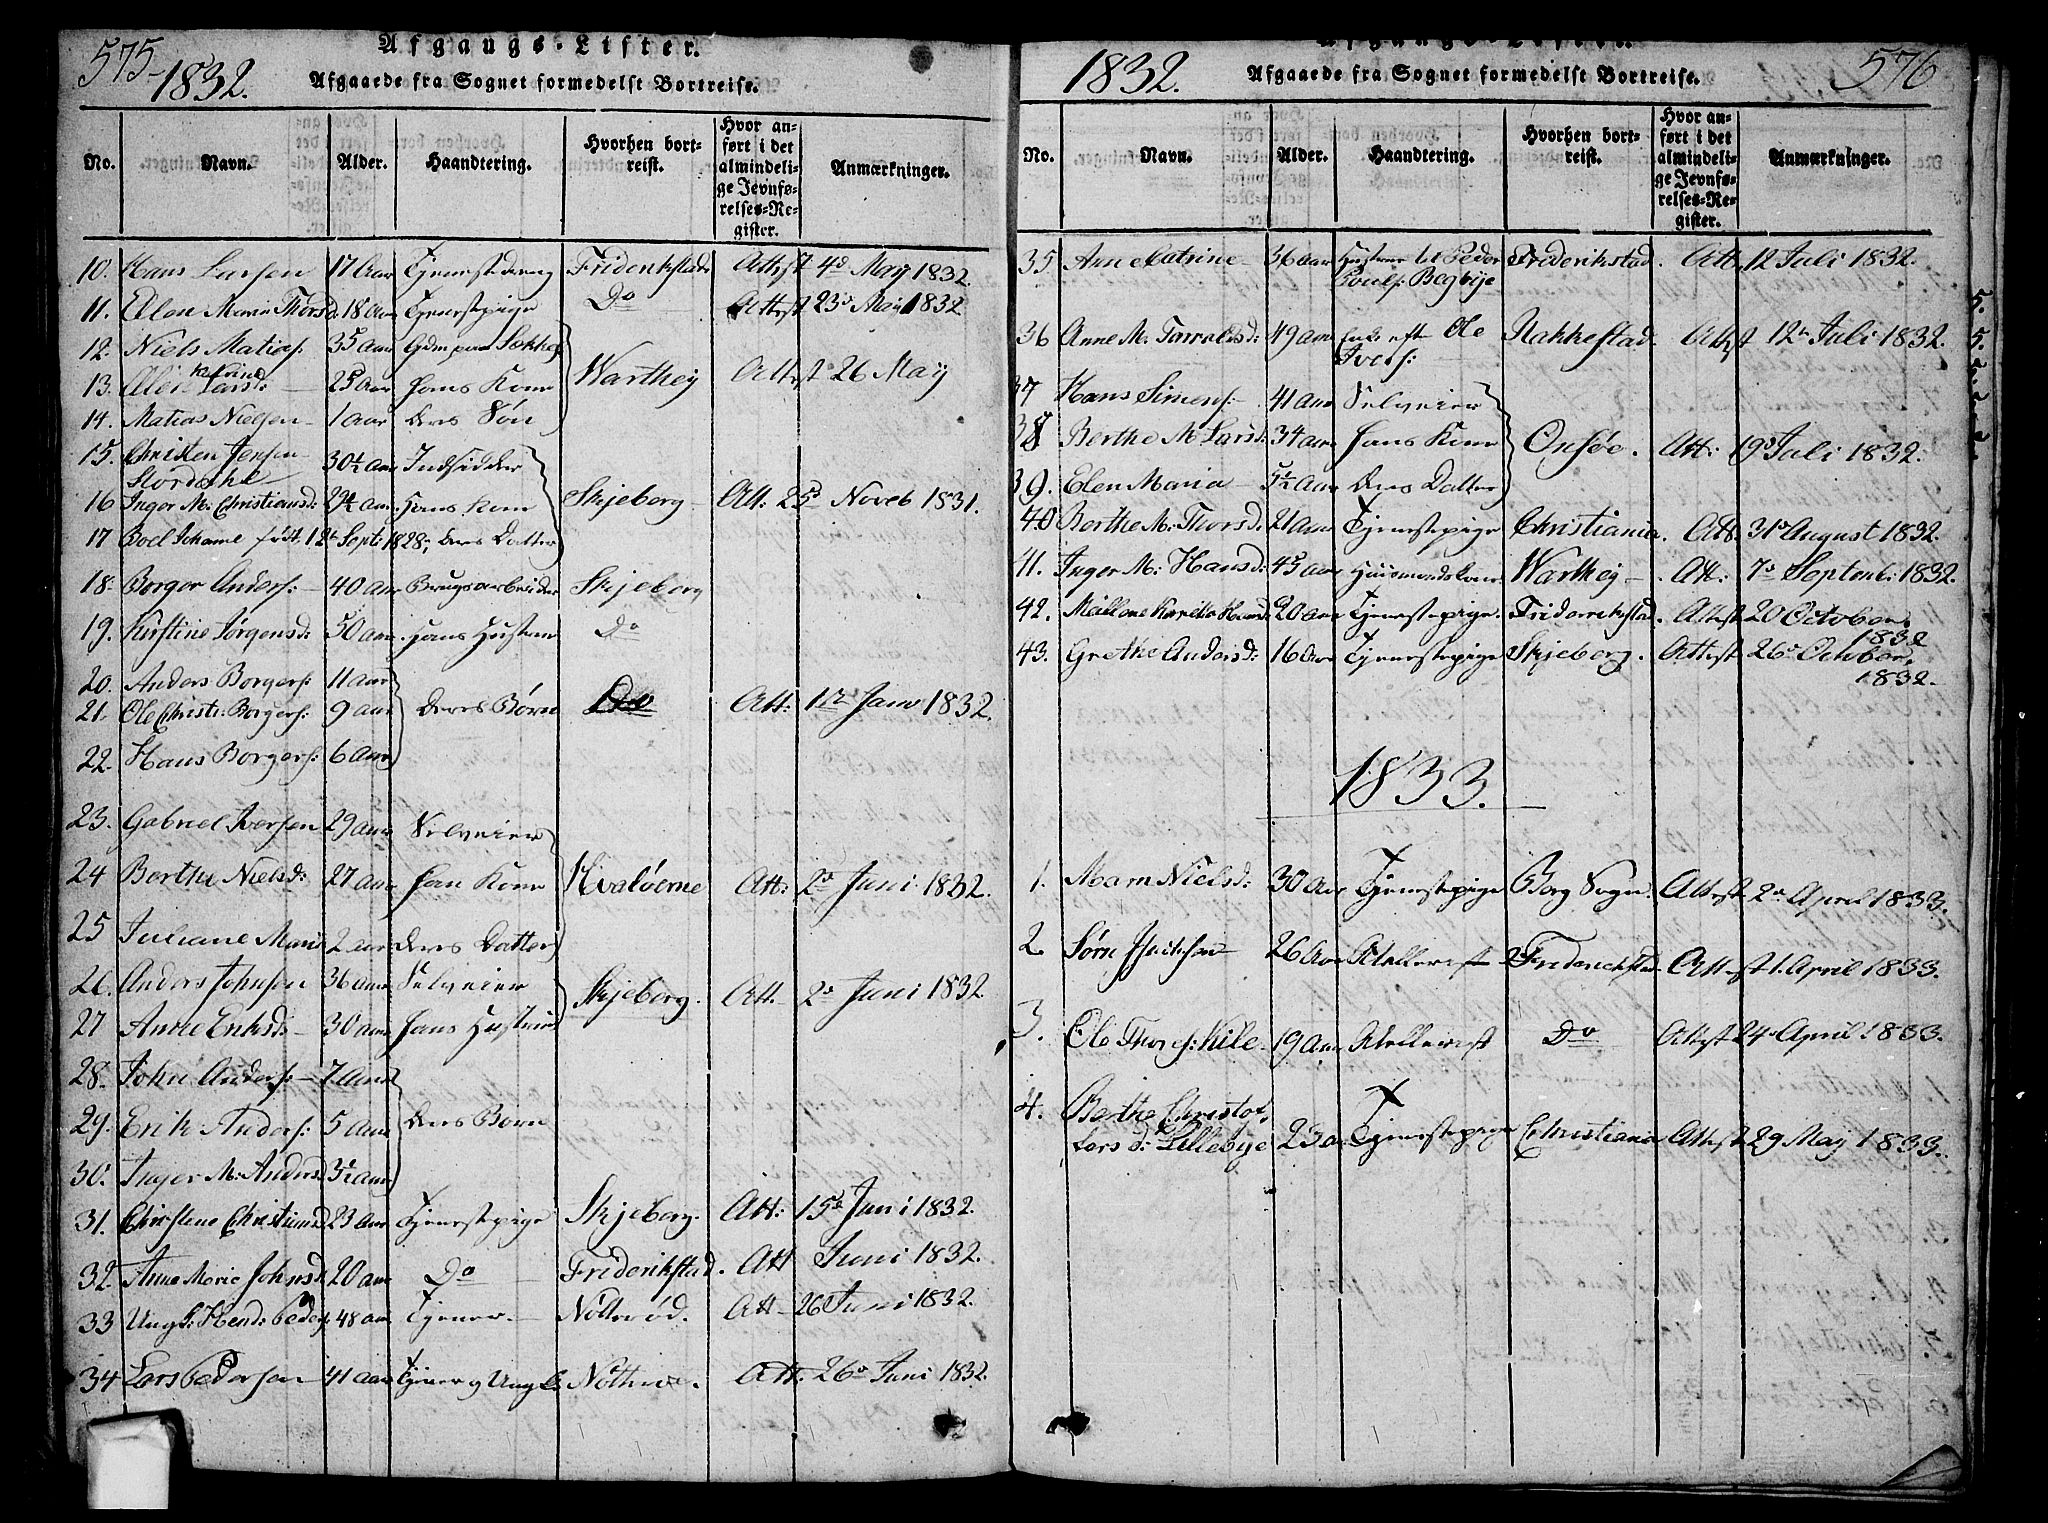 575
Afgangs-Lister.
1832.
Afgaaede fra Sognet formedelst Bortreise.
No. Navn. Alder. Haandtering. Hvorhen bortreist. Hvor anført i det almindelige Jevnførelses-Register. Anmærkninger.
10. Hans Larsen 17 Aar Tjenestedreng Friderikstad Attest 4d May 1832.
11. Elen Marie Thorsd. 18 Aar Tjenestepige Do Attest 23d May 1832
12. Niels Matias: 35 Aar
13. Larsd: 25 Aar Hans Kone Warthey Attest 26 May
14. Matias Nielsen 1 Aar Deres Søn
15. Christen Jensen 30½ Aar Indsidder
Stordahl
16 Inger M: Christiansd: 29½ Aar Hans Kone Skjeberg Att: 25d Noveb 1831.
17 Boel Johanne født 12te Septb: 1828, Deres Datter
18. Borger Anders: 40 Aar Brugsarbeider Skjeberg
19. Kirstine Jørgensd: 50 Aar Hans Hustrue Do
20. Anders Borgers: 11 Aar
21. Ole Christi: Borgers: 9 Aar Deres Børn Do Att: 12 Janv 1832.
22. Hans Borgers: 6 Aar
23. Gabriel Iversen 29 Aar Selveier
24 Berthe Nielsd: 27 Aar Hans Kone Hvaløerne Att: 2d Juni 1832.
25 Juliane Marie 2 Aar Deres Datter
26. Anders Johnsen 36 Aar Selveier Skjeberg. Att. 2d Juni 1832.
27 Anne Eriksd: 30 Aar Hans Hustrue
28. John Anders: 7 Aar
29. Erik Anders: 5 Aar Deres Børn
30. Inger M: Andersd 3½ Aar
31. Christene Christiansd 23 Aar Tjenestepige Skjeberg. Att: 15d Juni 1832.
32. Anne Marie Johnsd. 20 Aar Do Friderikstad. Att Juni 1832.
33 Ungk: Hend: Peders 48 Aar Tjener Nøtterød. Att 26 Juni 1832.
34 Lars Pedersen 41 Aar Tjener og Ungk. Att: 26d Juni 1832.
Afgangs-Lister.
576
1832.
Afgaaede fra Sognet formedelst Bortreise.
No. Navn. Alder. Haandtering. Hvorhen bortreist. Hvor anført i det almindelige Jevnførelses-Register. Anmærkninger.
35 Ane Catrine 36 Aar Hustrue til Peder Frederikstad. Att. 12 Juli 1832.
Pouls: Begbye
36 Anne M. Torvaldsd: 49 Aar Enke eft Ole Rakkestad. Attest 12te Juli 1832.
Ivers:
37 Hans Simens: 41 Aar Selveier
38 Berthe M Larsd: 34 Aar Hans Kone Onsøe. Att: 19d Juli 1832.
39. Elen Maria 5½ Aar Deres Datter
40 Berthe M: Thorsd: 21 Aar Tjenestepige Christiania. Att. 31d August 1832.
41. Inger M: Hansd: 45 Aar Huusmandskone Warthey Att: 7d Septemb: 1832.
42. 20 Aar Tjenestepige. Friderrikstad. Attest 20 October
1832
43. Grethe Andersd: 16 Aar Tjenestepige Skjeberg. Attest 26d October
1832.
1833.
1. Maren Nielsd: 30 Aar Tjenestepige Borg Sogn. Attest 2d April 1833.
2. Sørn 26 Aar Frederichstad Attest 1. April 1833.
3. Ole Thors: Kile. 19 Aar Do Attest 24d April 1833.
4. Berthe Christof,
Lars d: Lillebye 23 a Tjenestepige Christiania Attest 29 May 1833.